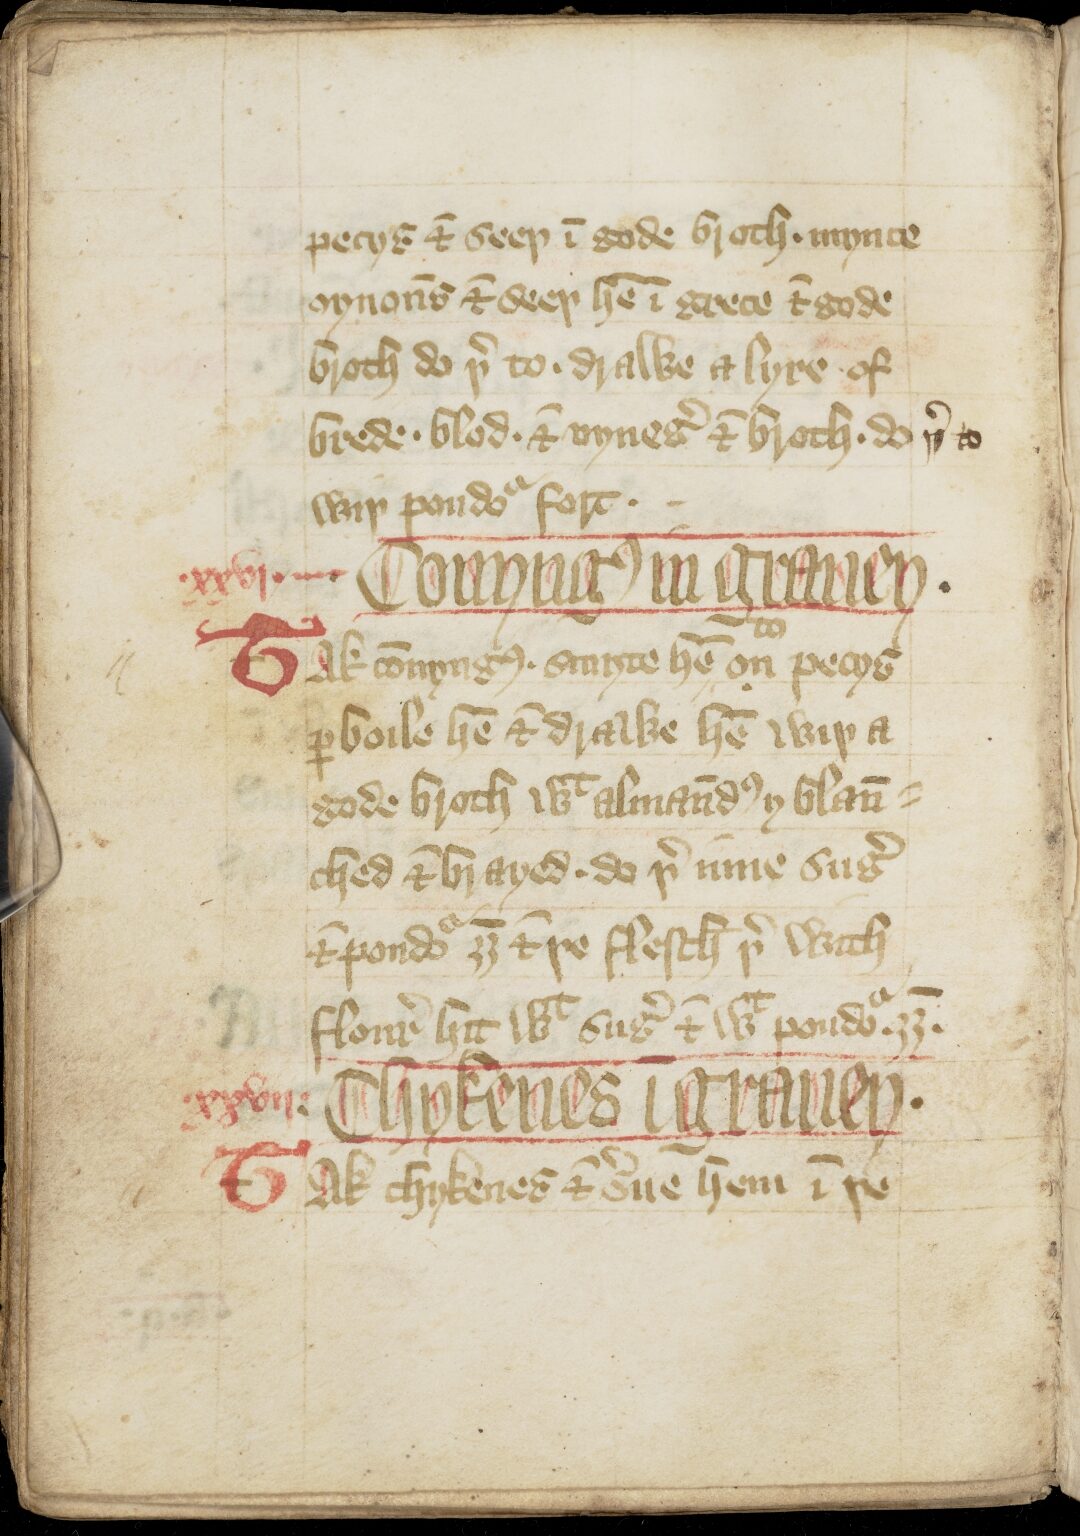 pecys & seeþ ī gode broth. mynce
oynoūs & seeþ hē ī grece & gode
broth do þ͛ to. drawe a lyre of
brede. blod. & vyneg͛ & broth. do þ͛ to
wiþ poudoͬ fort.
.xxvi. Connyngꝰ in grauey.
Tak cōnyngꝰ. smyte hē to pecys
ꝑboile hē & drawe hē wiþ a
gode broth wͭ almaūdꝰ y blan̄
ched & brayed. do þ͛ inne sug͛
& poudoͬ ʒʒ & þe flesch þ͛ with
flour͛ hit wͭ sug͛ & wͭ poudoͬ. ʒʒ.
.xxvii. Chykenes ī grauey.
Tak chykenes & s͛ue hem ī þe